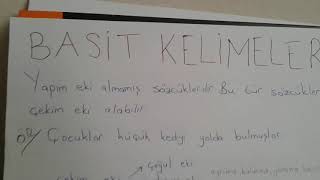 BASİT KELİMELER
Yapım eki almamış sözcüklerdir. Bu tür sözcükler
çekim eki alabilir
ÖR/ Çocuklar küçük kediyi yolda bulmuşlar
çoğul eki
çekim eki